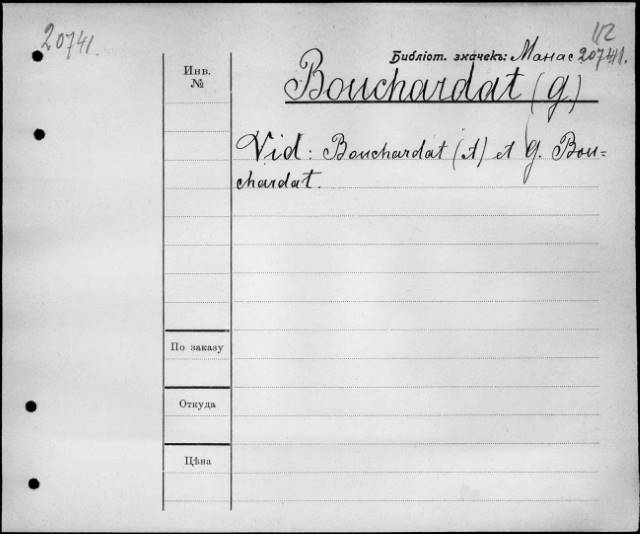 20741.
112
Библіот. значекъ: Манас 20741.
Инв.
№
Bouchardat (G.)
Vid: Bouchardat (A) et G. Bou=
chardat.
По заказу
Откуда
Цѣна